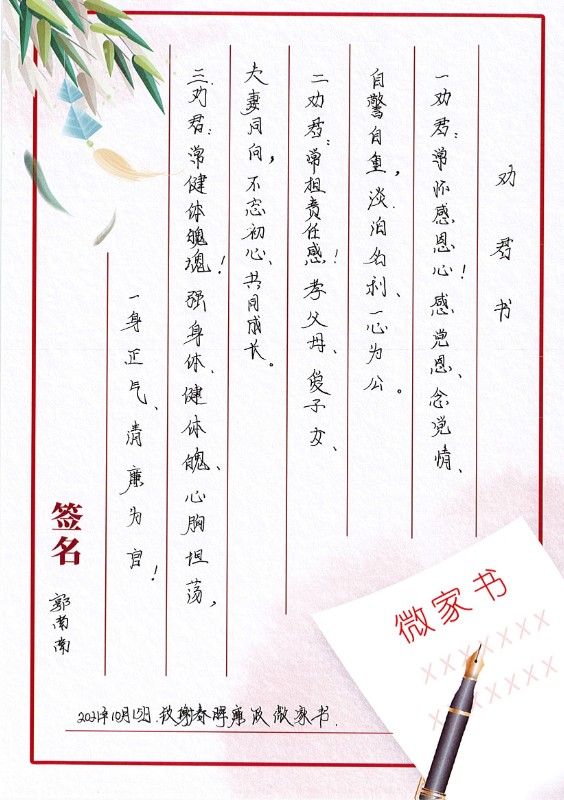 劝君书
一劝君：常怀感恩心！感党恩、念党情、
自警自重，淡泊名利、一心为公。
二劝君：常担责任感！孝父母、爱子女、
夫妻同向，不忘初心、共同成长。
三.劝君：常健体魄魂！强身体、健体魄、心胸坦荡，
一身正气、清廉为官！
签名
郭南南
2021年10月15日.致谢春晖廉政微家书.
微家书
XXXXXXX
XXXXXXX